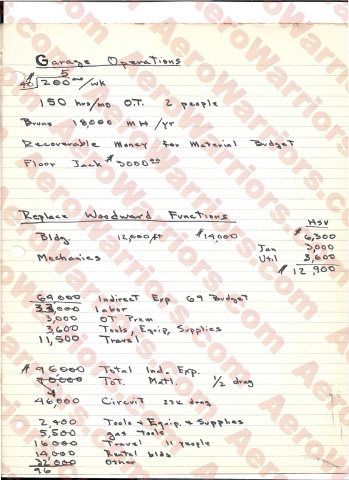 Garage Operations
5
40 200.00/wk
150 hrs/mo O.T. 2 people
Bruns 18,000 mH /yr
Recoverable Money for Material Budget
Floor Jack $3000.00
Replace Woodward Functions
HSV
Bldg 12,000 ft $14,000 $6,300
Jan 3,000
Mechanics Util 3,600
$12,900
64,000 Indirect Exp 69 Budget
33,000 labor
3,000 OT Prem
3,600 Tools, Equip, Supplies
11,500 Travel
$96,000 Total Ind. Exp.
TOT. Matl. 1/2 drag
46,000 Circuit 23K drag
2,400 Tools & Equip. & Supplies
5,500 gas tools
16,000 Travel 11 people
14,000 Rental bldg
32,000 Other
96
AeroWarriors.com